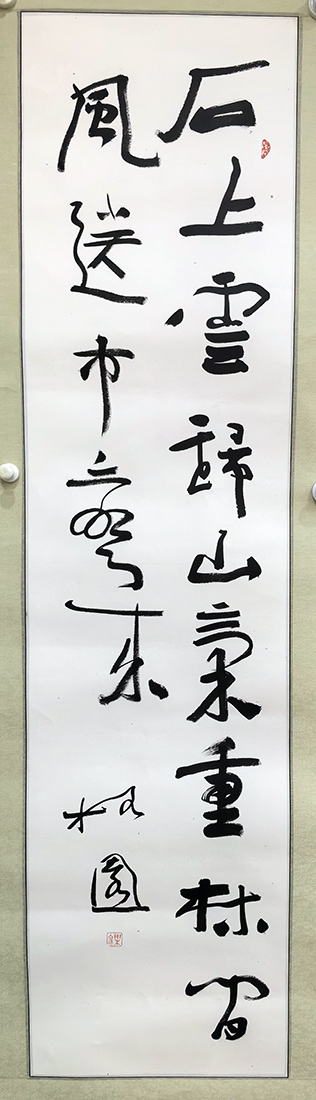 石上雲歸山氣重林間
風送市聲來 松園